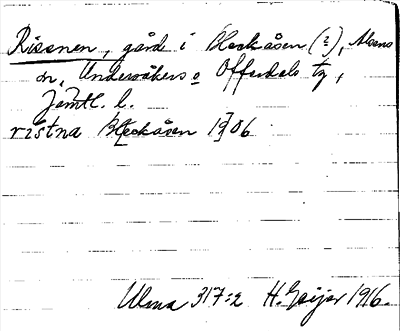 Rissnen, gård i Bleckåsen (?), Alsens
sn, Undersåkers o Offerdals tg,
Jämtl. l.
ristna Bleckåsen 1906
Ulma 317:2 H. Geijer 1916.